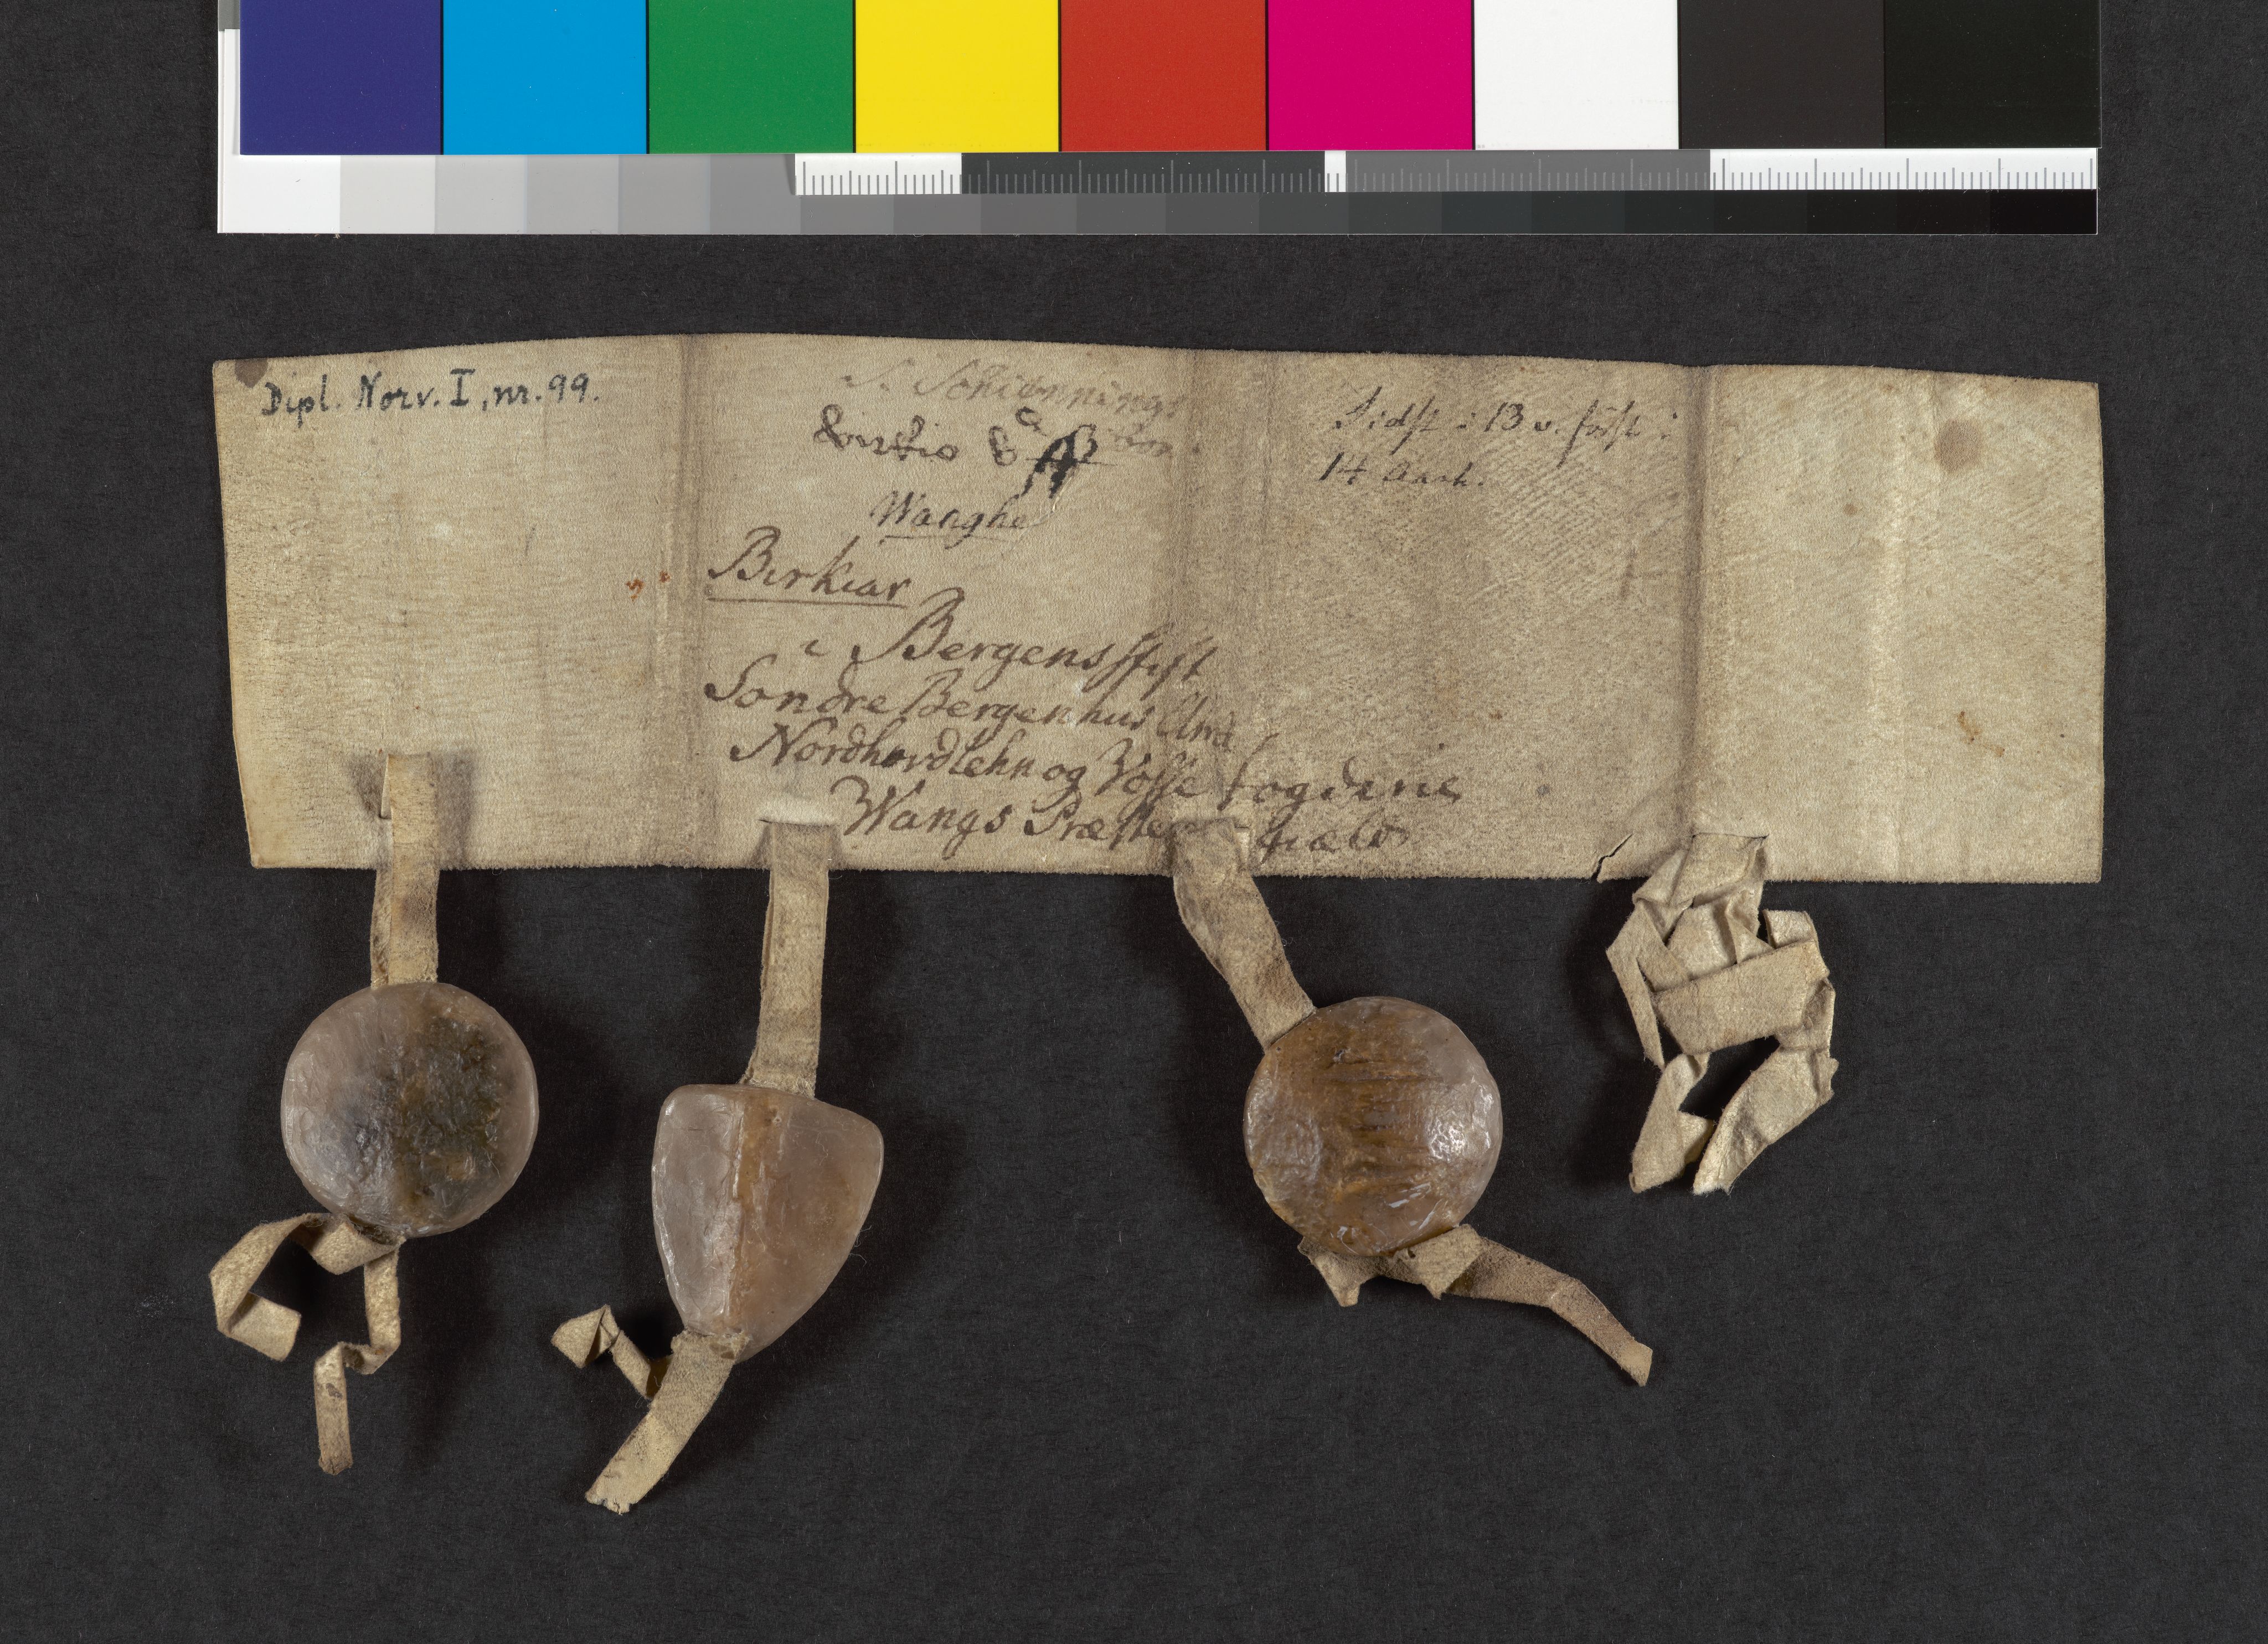 Dipl. Norv. I, nr. 99.
Schiønnings
Wanghe
Birkiar
i Bergens stift
Søndre Bergenhus Amt
Nordhordlehn og Vosse fogderie
Wangs Præstegiæld
Sidst i 13 o. først i
14 Aarh.